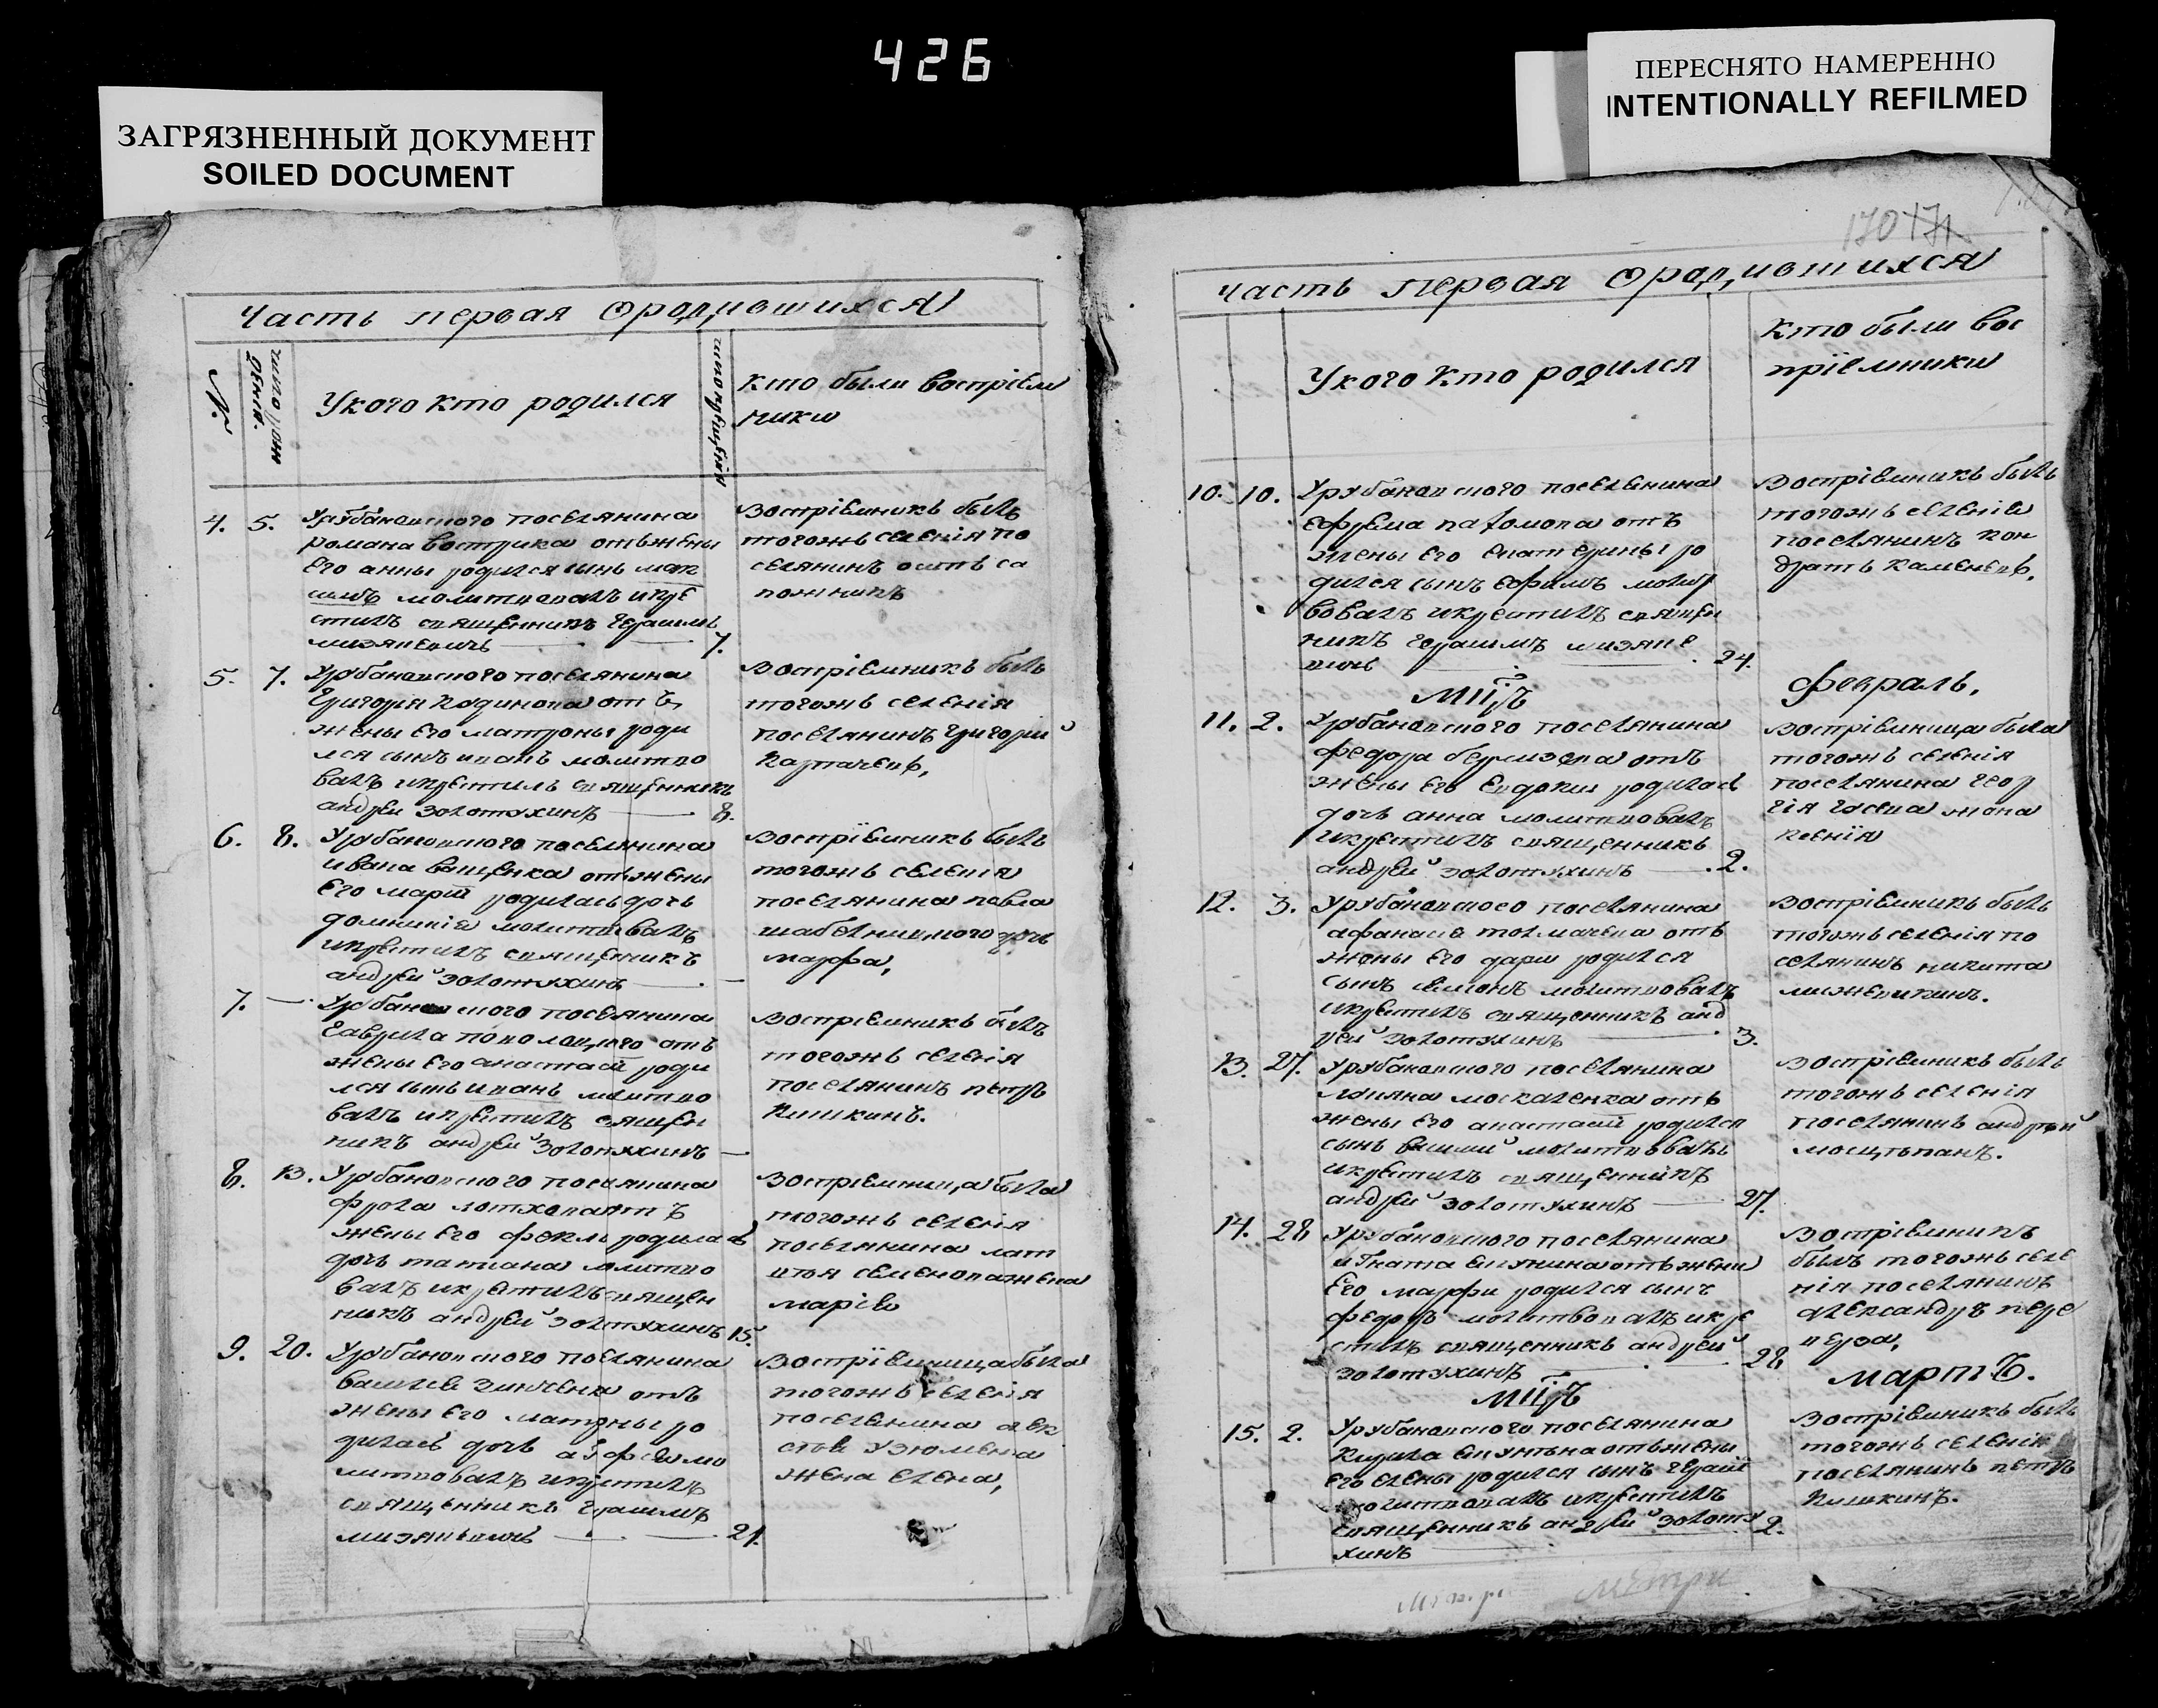 426
ЗАГРЯЗНЕННЫЙ ДОКУМЕНТ
SOILED DOCUMENT
ПЕРЕСНЯТО НАМЕРЕННО
INTENTIONALLY REFILMED
Часть первая о родившихся
№.
число рож
денія.
У кого кто родился
число крещенія
Кто были воспріем
ники
4. 5. Урубановского поселянина
романа вострика отъ жены
его анны родился сынъ мак
симъ молитвовалъ и кре
стилъ священникъ герасимъ
мизяневичь 7.
Воспріемникъ былъ
тогожъ селенія по
селянинъ осипъ са
пожникъ
5. 7. Урубановского поселянина
григорія кодинова отъ
жены его матроны роди
лся сынъ иванъ молитво
валъ и крестилъ священникъ
андрей золотухинъ 8.
Воспріемникъ былъ
тогожъ селенія
поселянинъ григорий
карпачевъ,
6. 8. Урубановского поселянина
ивана ващенка отъ жены
его маріи родилась дочь
домникія молитвовалъ
и крестилъ священникъ
андрей золотухинъ
Воспріемникъ былъ
тогожъ селенія
поселянина павла
шабелницкого дочь
марфа,
7. Урубановского поселянина
гаврила половацкого отъ
жены его анастасіи роди
лся сынъ иванъ молитво
валъ и крестилъ священ
никъ андрей золотухинъ
Воспріемникъ былъ
тогожъ селенія
поселянинъ петръ
кишкинъ.
8. 13. Урубановского поселянина
фрола лотхова отъ
жены его феклы родилась
дочь татиана молитво
валъ и крестилъ священ
никъ андрей золотухинъ 15.
Воспріемница была
тогожъ селенія
поселянина мат
вѣя семенова жена
марія
9. 20. Урубановского поселянина
василія зинченка отъ
жены его матроны ро
дилась дочь мо
литвовалъ и крестилъ
священникъ герасимъ
мизяневичь 21.
Воспріемница была
тогожъ селенія
поселянина алек
сѣя узюмена
жена елена,
170 171
Часть первая о родившихся
У кого кто родился
Кто были вос
пріемники
10. 10. Урубановского поселянина
ефрема пахомова отъ
жены его екатерины ро
дился сынъ ефримъ молит
вовалъ и крестилъ священ
никъ герасимъ мизяне
вичь 24.
Воспріемникъ былъ
тогожъ селенія
поселянинъ кон
дратъ каменевъ,
мцъ Февраль,
11. 2. Урубановского поселянина
федора бермизева отъ
жены его евдокіи родилась
дочь анна молитвовалъ
и крестилъ священникъ
андрей золотухинъ 2.
Воспріемница была
тогожъ селенія
поселянина геор
гія гусева жена
ксенія
12. 3. Урубановского поселянина
афанасія толмачева отъ
жены его дарьи родился
сынъ симіонъ молитвовалъ
и крестилъ священникъ анд
рей золотухинъ 3.
Воспріемникъ былъ
тогожъ селенія по
селянинъ никита
мижевикинъ.
13. 27. Урубановского поселянина
лукяна москаленка отъ
жены его анастасіи родился
сынъ василій молитвовалъ
и крестилъ священникъ
андрей золотухинъ 27.
Воспріемникъ былъ
тогожъ селенія
поселянинъ андрей
мосцепанъ.
14. 28 Урубановского поселянина
игната епунина отъ жены
его марфи родился сынъ
федоръ молитвовалъ и кре
стилъ священникъ андрей
золотухинъ 28
Воспріемникъ
былъ тогожъ селе
нія поселянинъ
александръ пере
пера,
мцъ мартъ.
15. 2. Урубановского поселянина
кирила епунина отъ жены
его елены родился сынъ герасимъ
молитвовалъ и крестилъ
священникъ андрей золоту
хинъ 2.
Воспріемникъ былъ
тогожъ селенія
поселянинъ петръ
кишкинъ.
метри